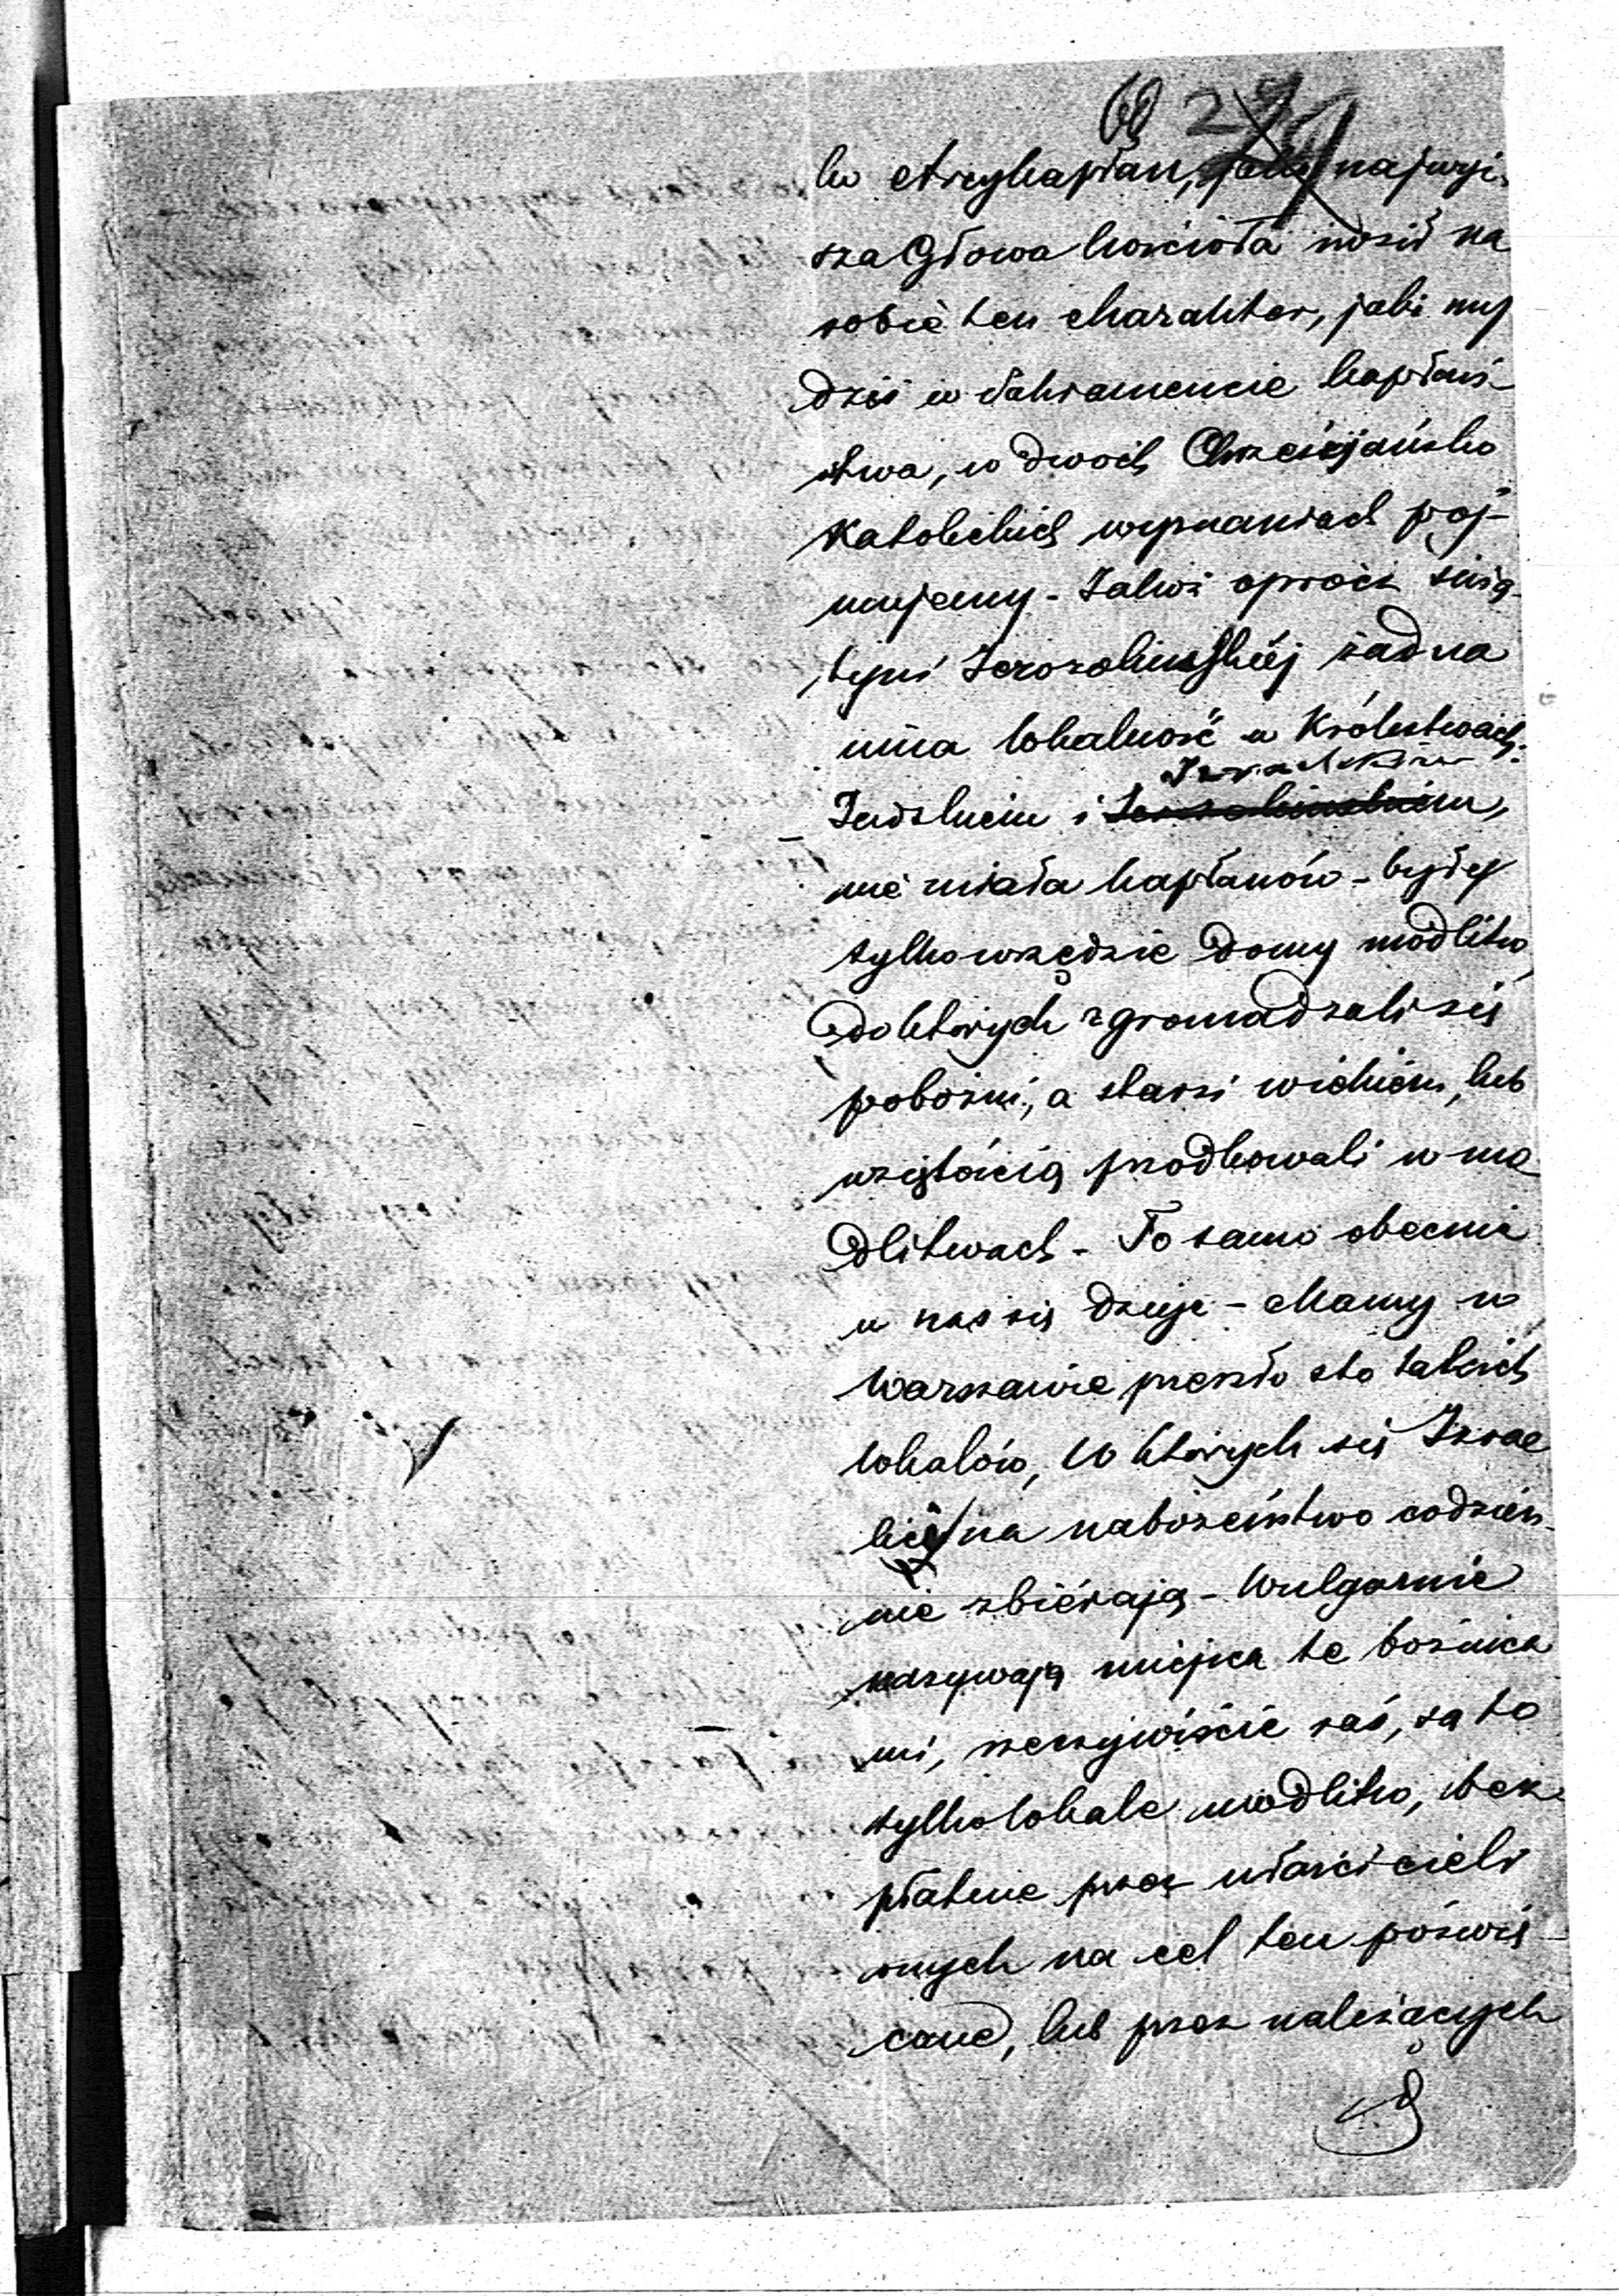 ko Arcykapłan, jako najwyż-
sza Głowa kościoła nosił na
sobie ten charakter, jaki my
dziś w Sakramencie kapłań-
stwa, w dwóch Chrześcijańsko
Katolickich wyznaniach poj-
mujemy - Jakoż oprócz świą-
tyni Jerozolimskiéj żadna
inna lokalność w Królestwach:
Izraelskim
Judzkiem i Jerozolimskiem,
nie miała kapłanów - były
tylko wszędzie domy modlitw,
do których zgromadzali się
pobożni, a starsi wiekiem, lub
wziętością przodkowali w mo
dlitwach - To samo obecnie
u nas się dzieje - Mamy w
Warszawie przeszło sto takich
lokalów, w których się Izrae
lici na nabożeństwo codzien-
nie zbiérają - Wulgarnie
nazywają miejsca te bożnica
mi, rzeczywiście zaś, są to
tylko lokale modlitw, bez-
płatnie przez właścicieli
onych na cel ten poświę-
cone, lub przez należących